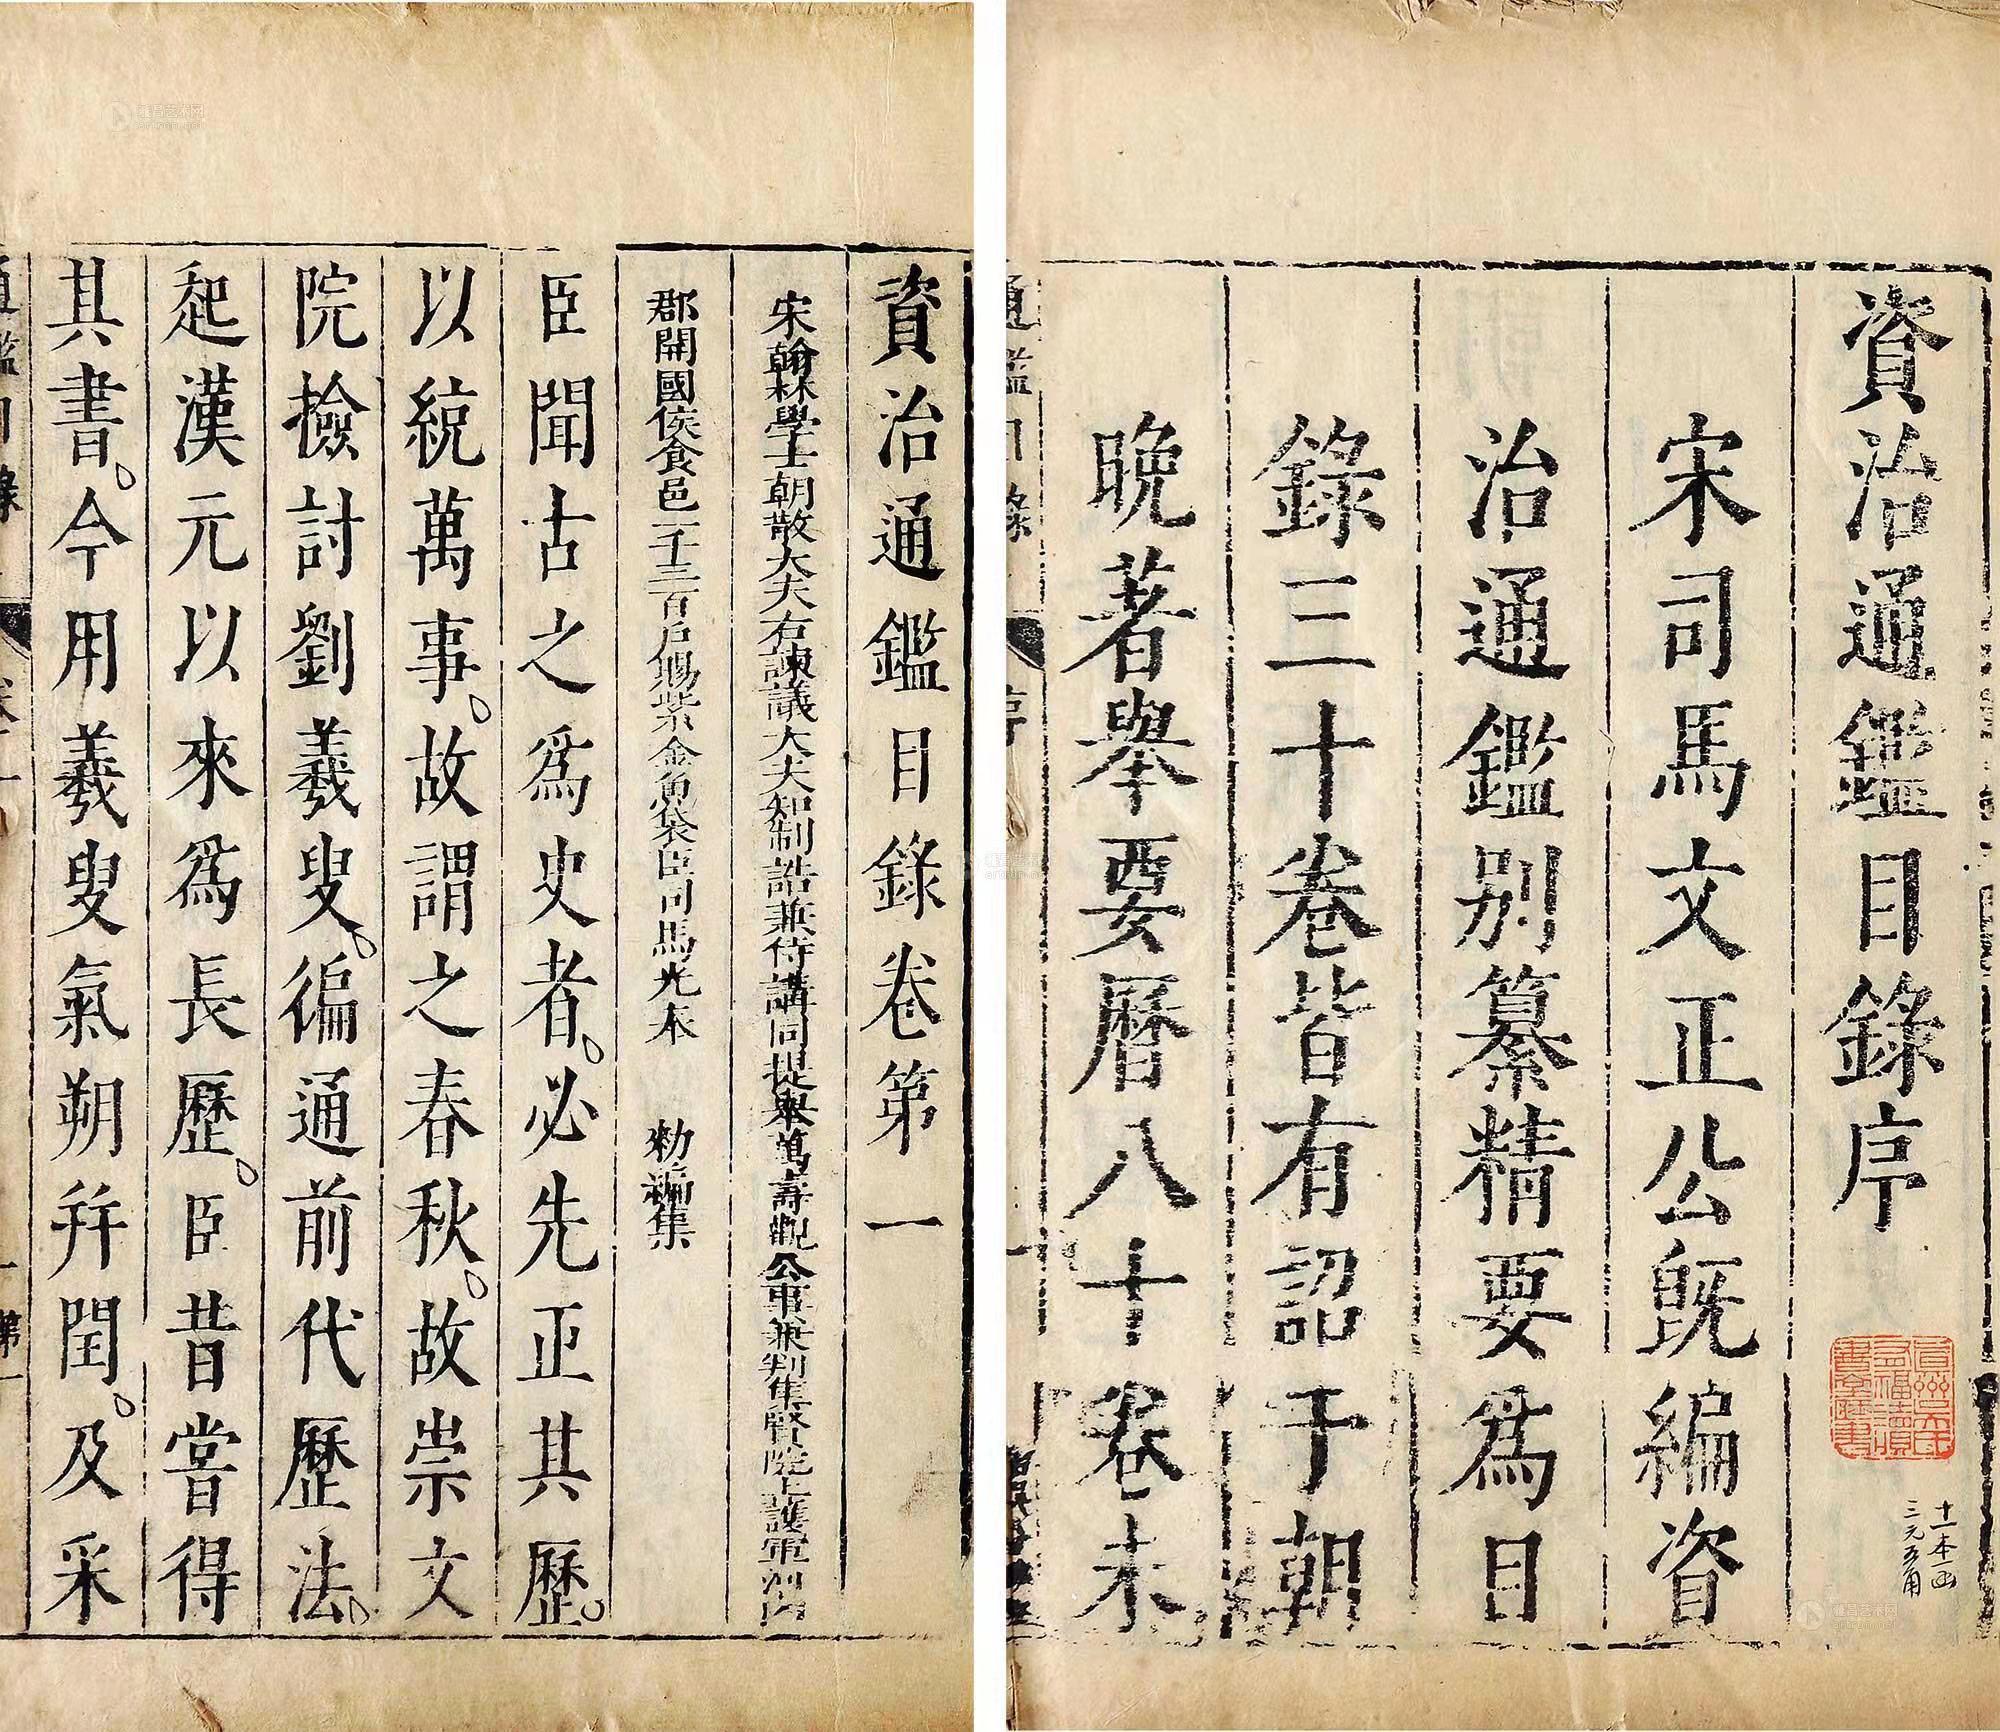 資治通鑑目錄序
宋司馬文正公旣編資
治通鑑別纂精要爲目
錄三十卷皆有詔于朝
晚著舉要曆八十卷未
十一本一函
三元五角
資治通鑑目錄卷第一
宋翰林學士朝散大夫右諫議大夫知制誥兼侍講同提舉萬壽觀公事兼判集賢院上護軍河內
郡開國侯食邑一千三百戶賜紫金魚袋臣司馬光奉 勑編集
臣聞古之爲史者。必先正其歷。
以統萬事。故謂之春秋。故崇文
院撿討劉羲叟。徧通前代歷法。
起漢元以來爲長歷。臣昔嘗得
其書。今用羲叟氣朔并閏。及采